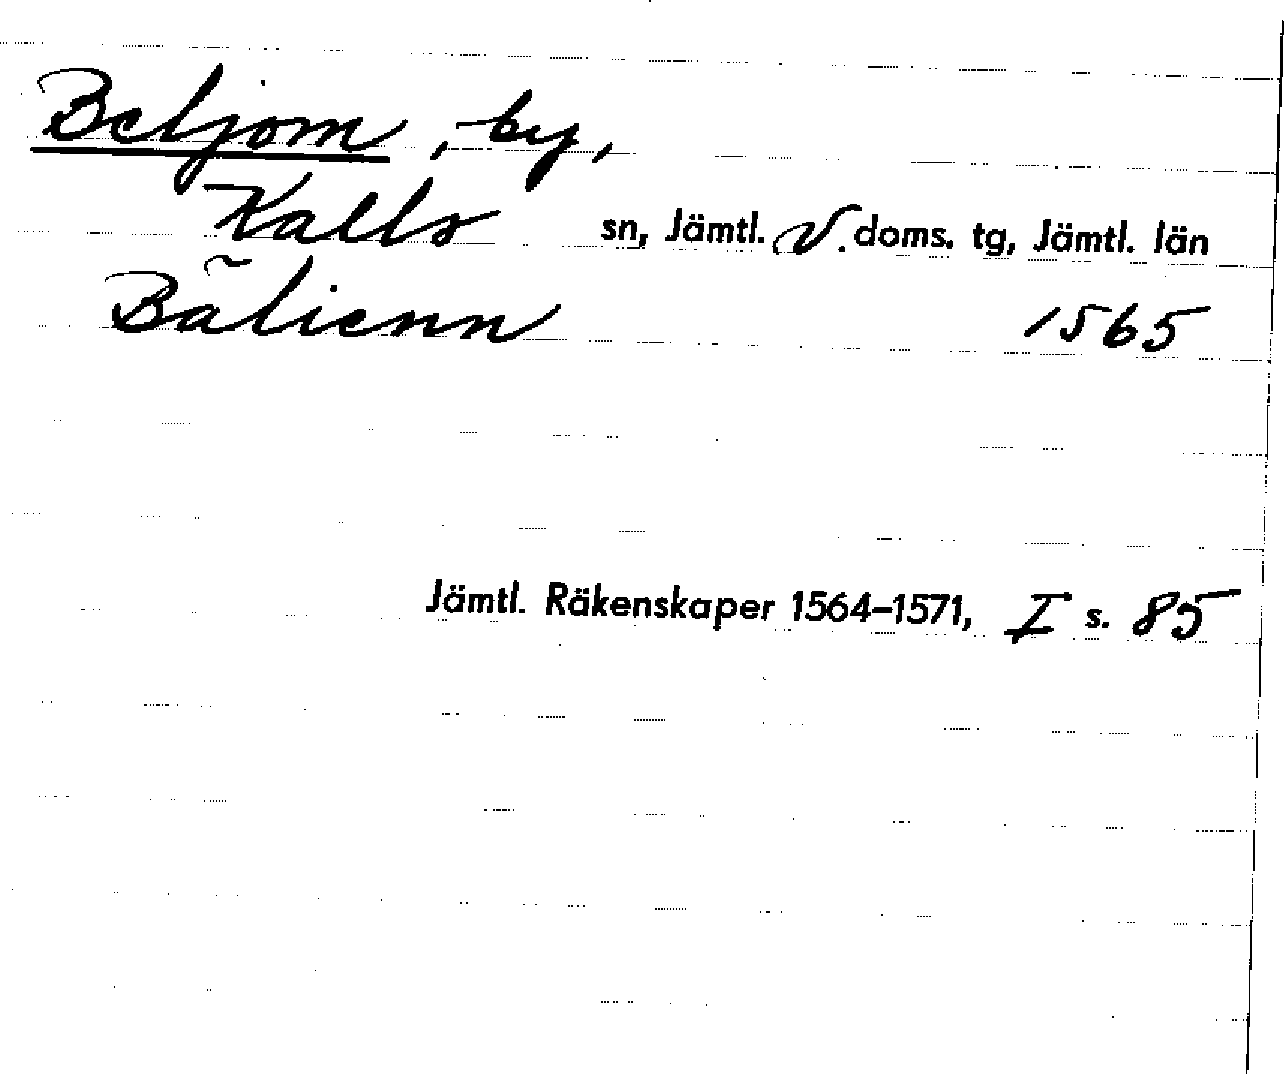 Beljom, by,
Kalls sn, Jämtl. V. doms. tg, Jämtl. län
Bãlienn 1565
Jämtl. Räkenskaper 1564–1571, I s. 85